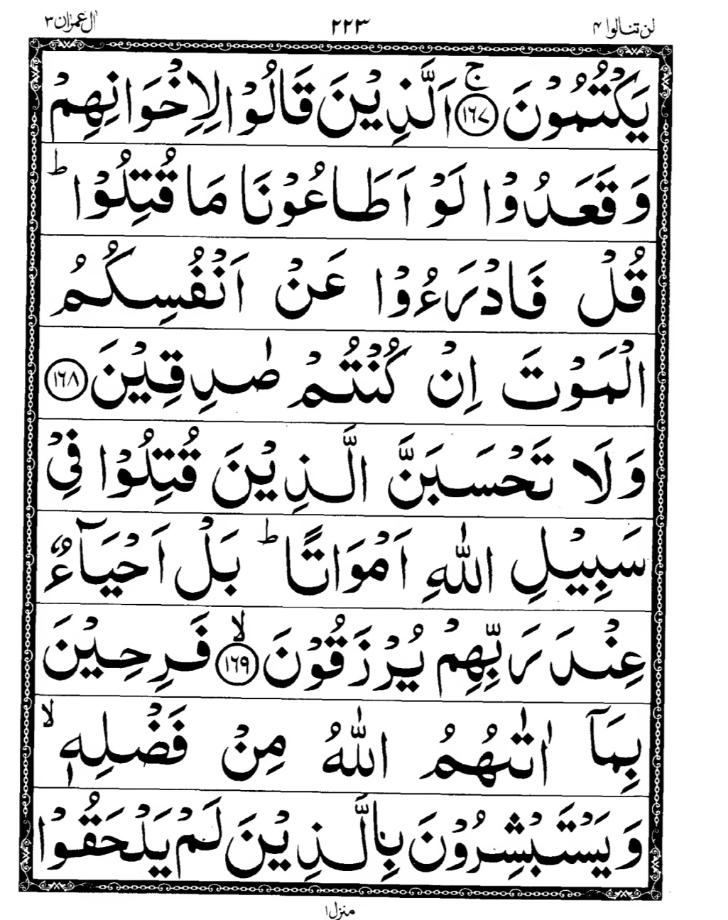 لن تنالوا ۴ ۲۲۳ اٰل عمرٰن ۳
يَكْتُمُوْنَ ۚ‏﴿۱۶۷﴾ اَلَّذِيْنَ قَالُوْا لِاِخْوَانِهِمْ
وَقَعَدُوْا لَوْ اَطَاعُوْنَا مَا قُتِلُوْا ؕ
قُلْ فَادْرَءُوْا عَنْ اَنْفُسِكُمُ
الْمَوْتَ اِنْ كُنْتُمْ صٰدِقِيْنَ ﴿۱۶۸﴾
وَلَا تَحْسَبَنَّ الَّذِيْنَ قُتِلُوْا فِىْ
سَبِيْلِ اللّٰهِ اَمْوَاتًا ؕ بَلْ اَحْيَآءٌ
عِنْدَ رَبِّهِمْ يُرْزَقُوْنَ ۙ‏﴿۱۶۹﴾ فَرِحِيْنَ
بِمَاۤ اٰتٰٮهُمُ اللّٰهُ مِنْ فَضْلِهٖ ۙ
وَيَسْتَبْشِرُوْنَ بِالَّذِيْنَ لَمْ يَلْحَقُوْا
منزل ۱